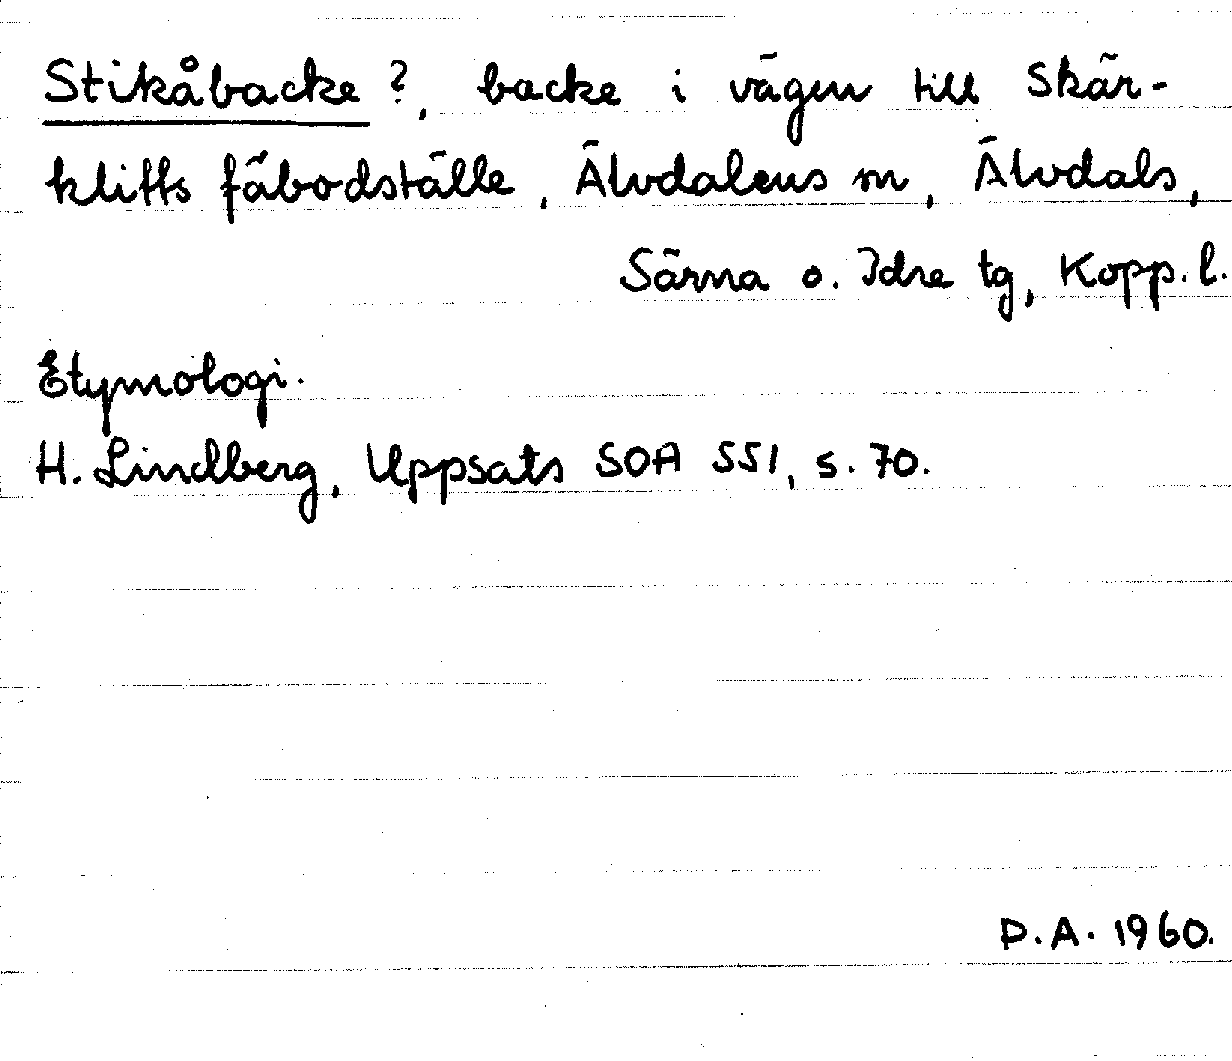 Stikåbacke ?, backe i vägen till Skär-
klitts fäbodställe, Älvdalens sn, Älvdals,
Särna o. Idre tg, Kopp. l.
Etymologi.
H. Lindberg, Uppsats SOA 551, s. 70.
P.A. 1960.